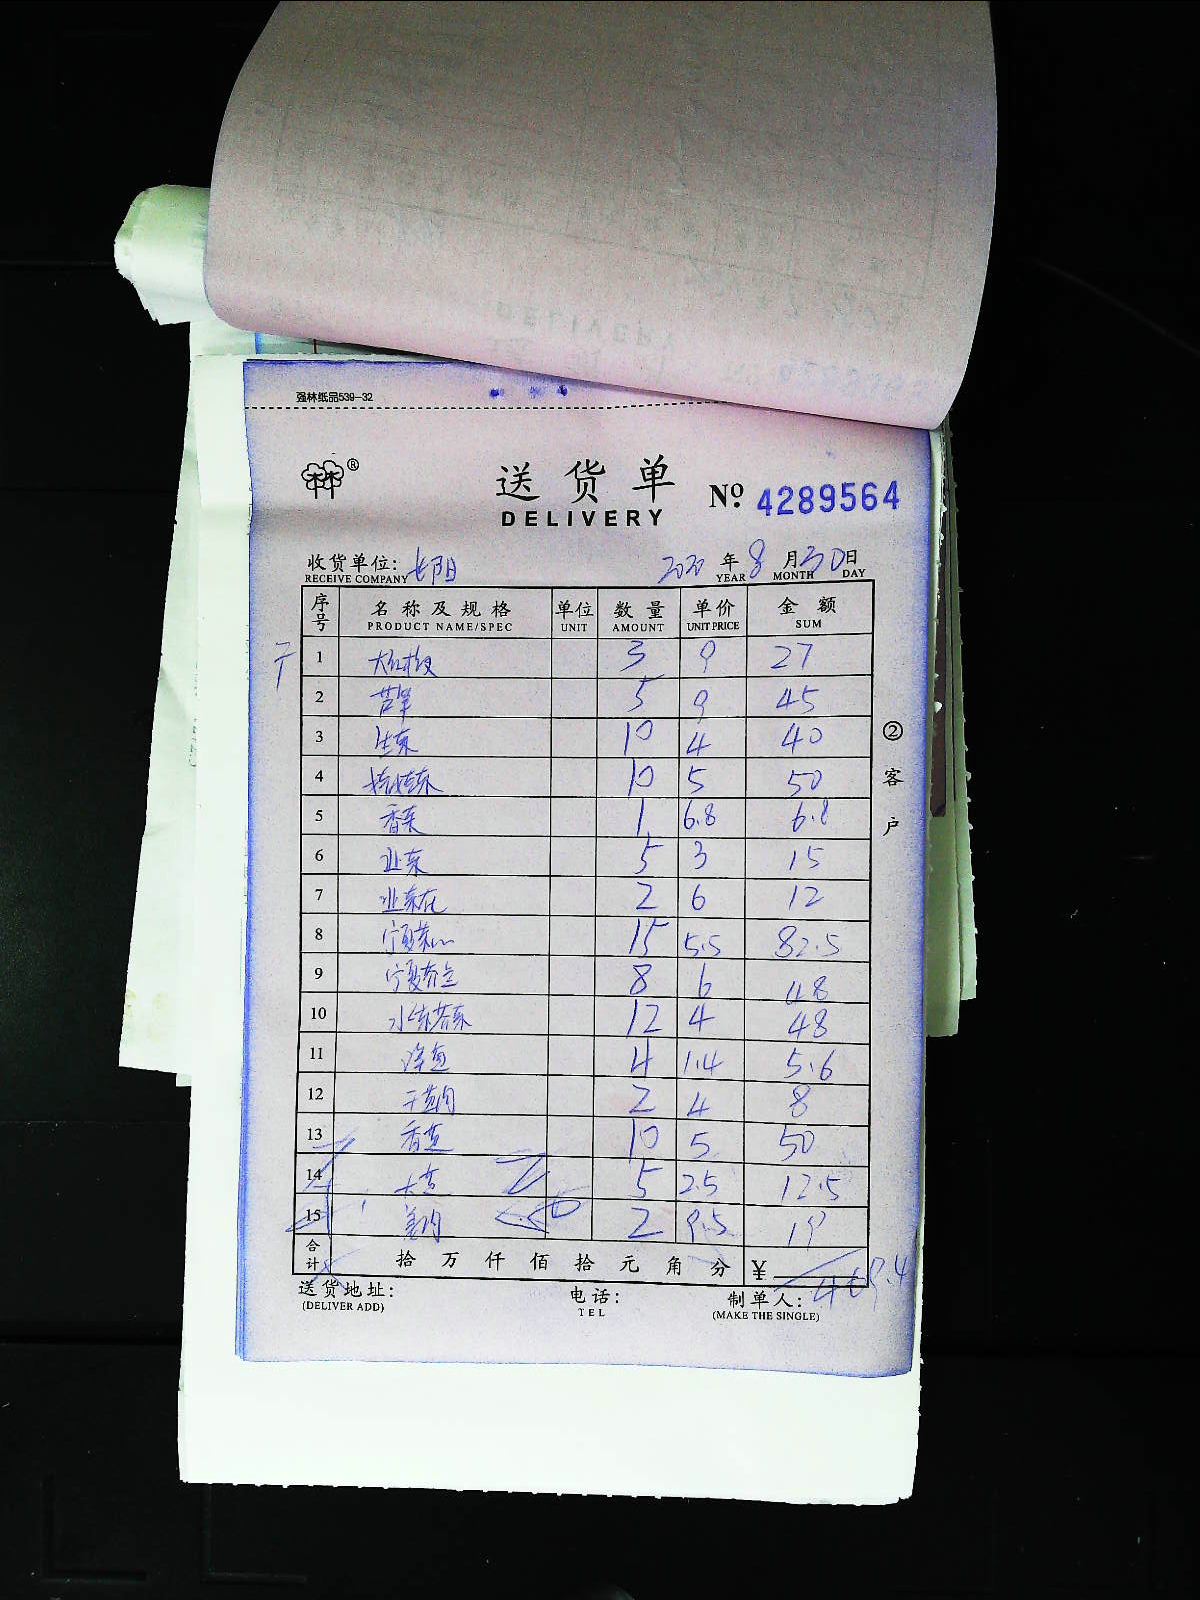 强林纸品539-32
林®
送货单
DELIVERY
Nº. 4289564
收货单位: 长阳 2020 年 8 月 30 日
RECEIVE COMPANY YEAR MONTH DAY
序号 名称及规格 单位 数量 单价 金额
PRODUCT NAME/SPEC UNIT AMOUNT UNIT PRICE SUM
1 3 9 27
2 芦笋 5 9 45
3 生菜 10 4 40
4 10 5 50
5 香菜 1 6.8 6.8
6 5 3 15
7 2 6 12
8 宁夏菜心 15 5.5 82.5
9 宁夏芥兰 8 6 48
10 12 4 48
11 洋葱 4 1.4 5.6
12 干葱肉 2 4 8
13 香葱 10 5 50
14 大葱 5 2.5 12.5
15 姜肉 2 9.5 19
合计 拾 万 仟 佰 拾 元 角 分 ¥ 469.4
送货地址: 电话: 制单人:
(DELIVER ADD) TEL (MAKE THE SINGLE)
②客户